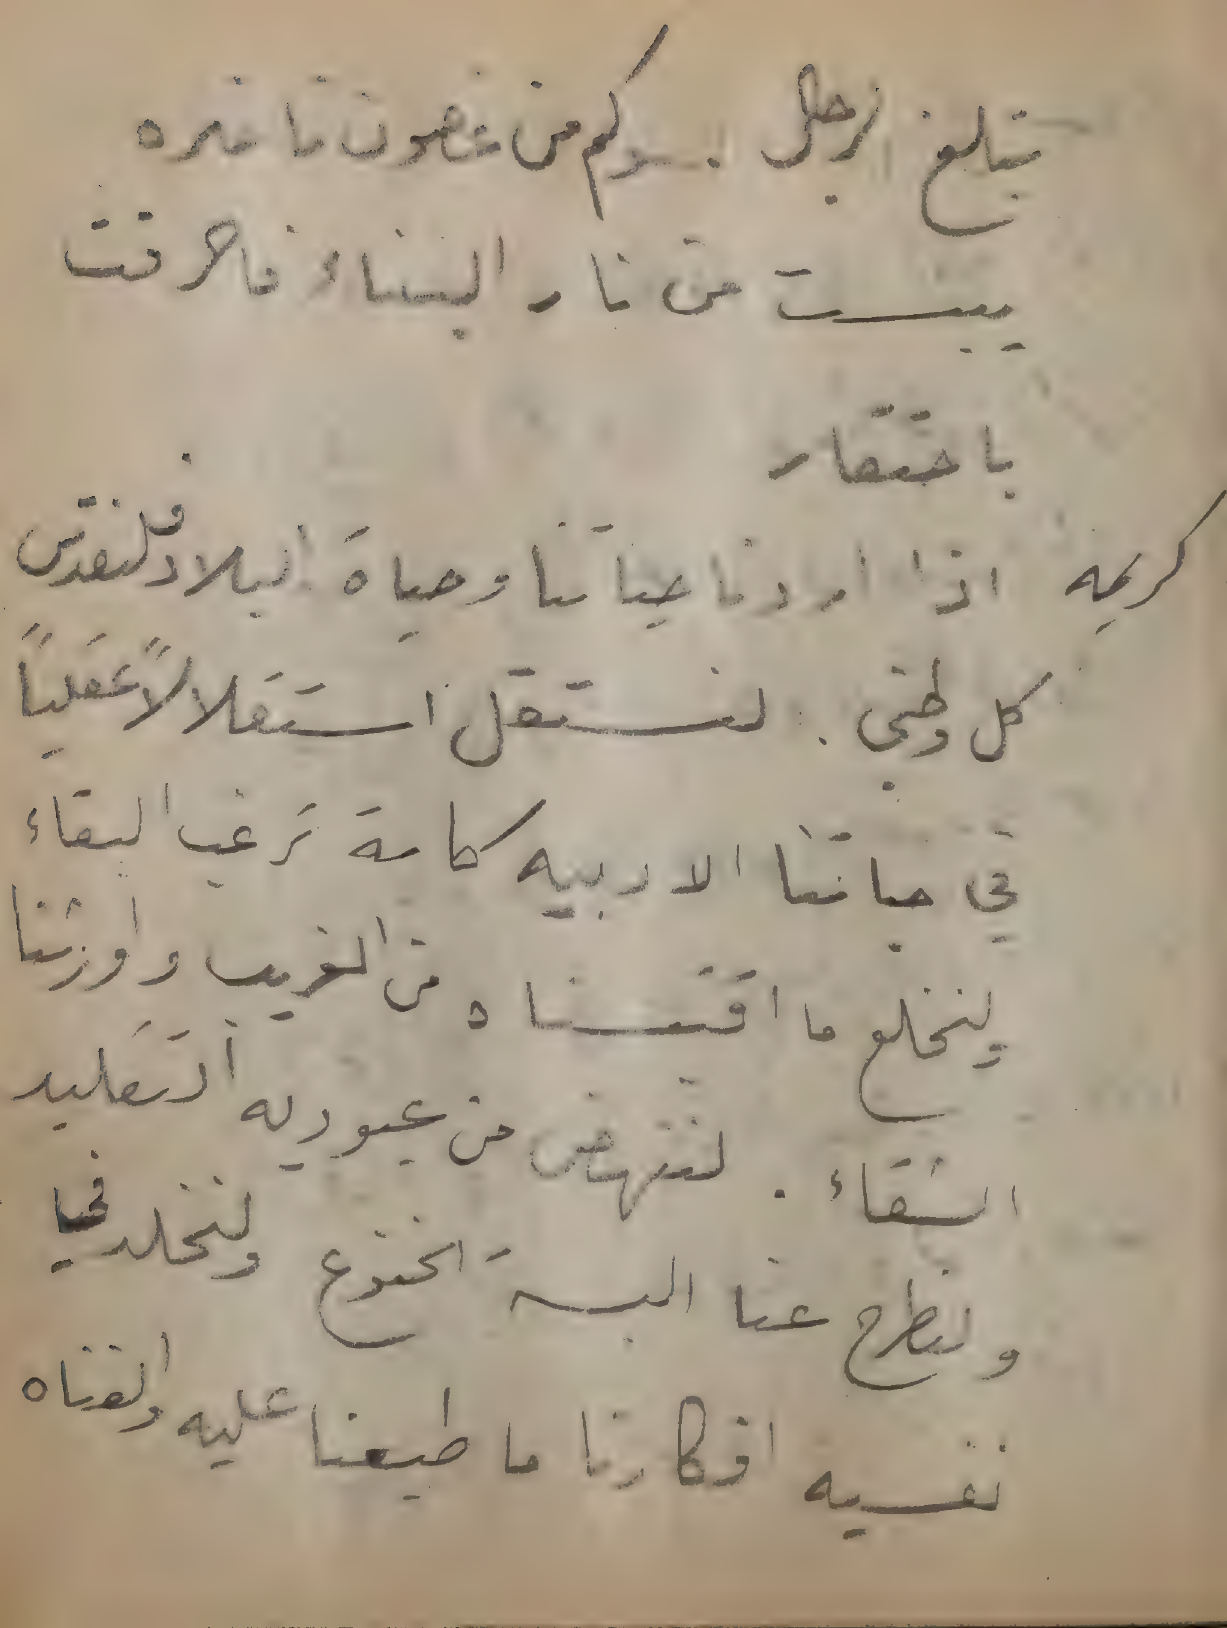 يتبلغ الرجل . وكم من غصون ناضره
يبست من نار الشتاء فاحرقت
باحتقار
كريمه اذا اردنا حياتنا وحياة البلاد فلنقدس
كل وطني . لنستقل استقلالاً عقلياً
في حياتنا الادبيه كامة ترغب البقاء
ولنخلع ما اقتبسناه من الغريب واورثنا
الشقاء . لننهض من عبودية التقليد
ولنطرح عنا البسة الخنوع ولنخلد
نفسيه افكارنا ما طبعنا عليه والفناه